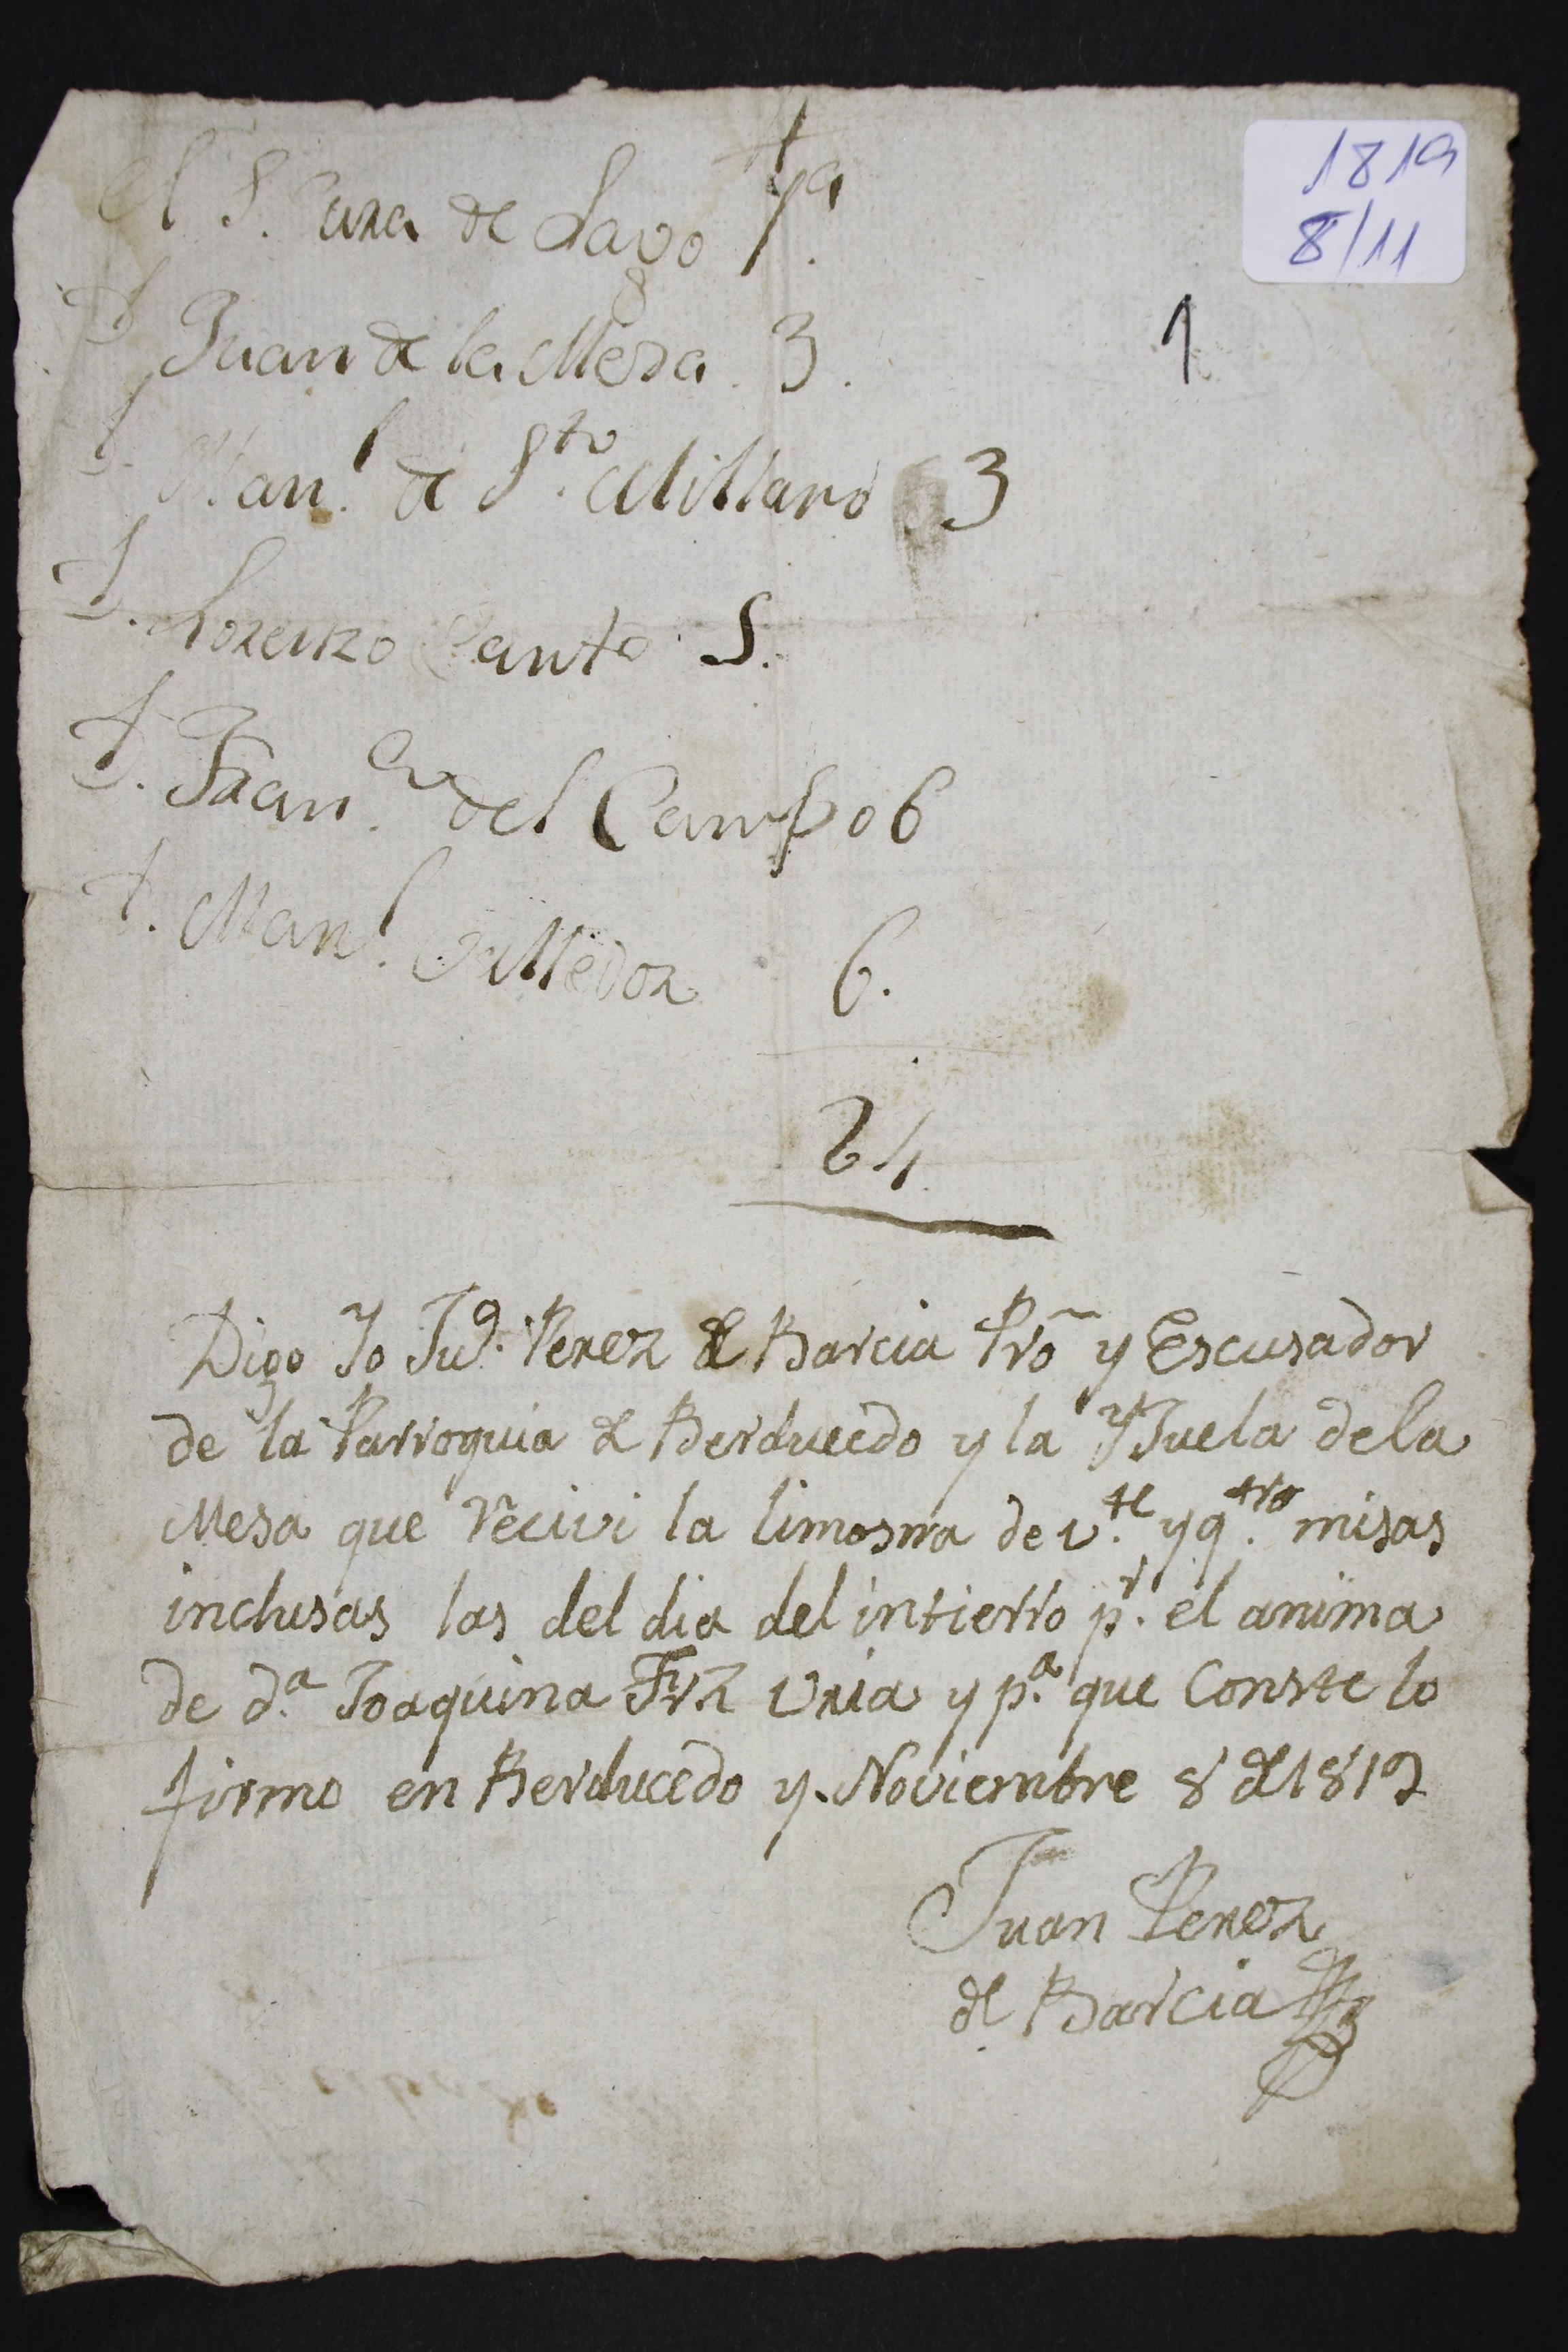 1819
8/11
el S. Cura de Lago 1ª.
1
D Juan de la Mesa. 3.
D. Man.l de S.to Millano 3
D. Lorenzo Canto 5.
D. Fran.co del Campo 6
D. Man.l Valledor 6.
24
Digo Yo Ju.º Perez de Barcia Prõ y Escusador
de la Parroquia de Berducedo y la Yjuela dela
Mesa que recivi la limosna de v.te y q.tro misas
inclusas las del dia del intierro p.r el anima
de d.ª Joaquina Frz Uria y p.ª que Conste lo
firmo en Berducedo y Noviembre 8 de 1819
Juan Perez
de Barcia